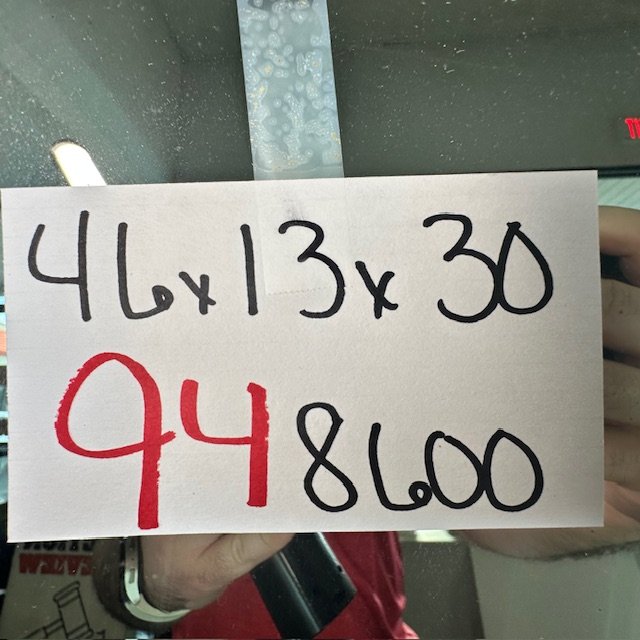 46x13x30
94 8600